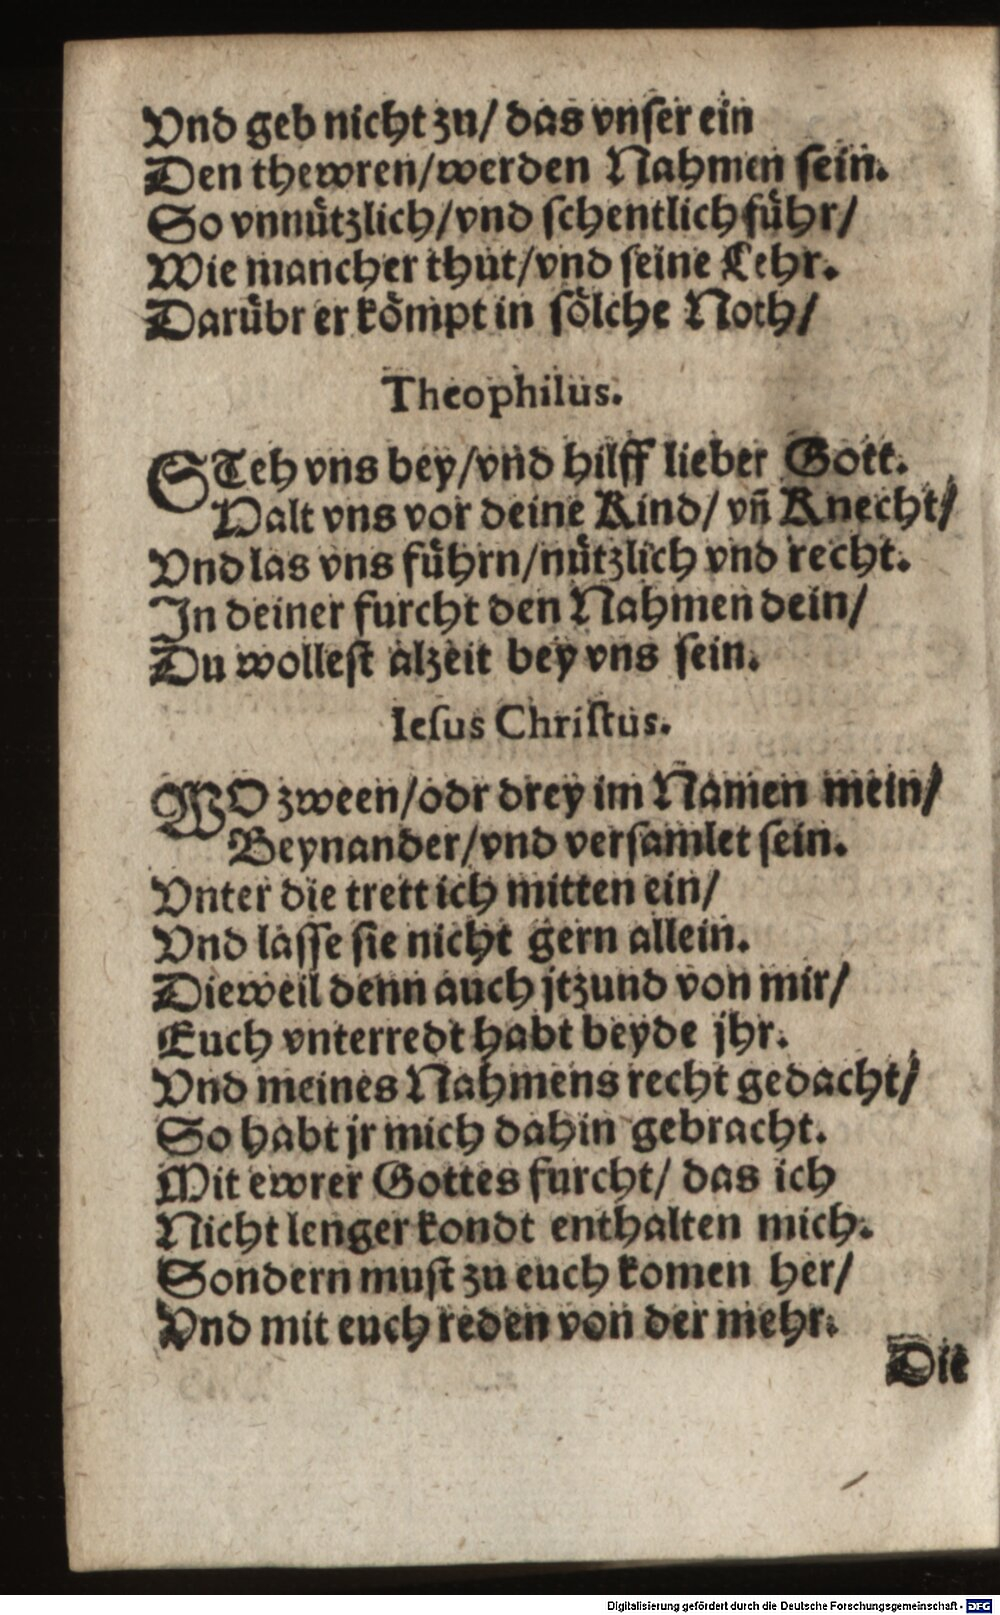 Vnd geb nicht zu/ das vnser ein
Den thewren/werden Nahmen sein.
So vnnuͤtzlich/vnd schentlich fuͤhr/
Wie mancher thut/vnd seine Lehr.
Daruͤbr er koͤmpt in soͤlche Noth/
Theophilus.
STeh vns bey/vnd hilff lieber Gott.
Halt vns vor deine Kind/ vñ Knecht/
Vnd las vns fuͤhrn/nuͤtzlich vnd recht.
In deiner furcht den Nahmen dein/
Du wollest alzeit bey vns sein.
Iesus Christus.
WO zween/odr drey im Namen mein/
Beynander/vnd versamlet sein.
Vnter die trett ich mitten ein/
Vnd lasse sie nicht gern allein.
Dieweil denn auch jtzund von mir/
Euch vnterredt habt beyde jhr.
Vnd meines Nahmens recht gedacht/
So habt jr mich dahin gebracht.
Mit ewrer Gottes furcht/ das ich
Nicht lenger kondt enthalten mich.
Sondern must zu euch komen her/
Vnd mit euch reden von der mehr.
Die
Digitalisierung gefördert durch die Deutsche Forschungsgemeinschaft - DFG